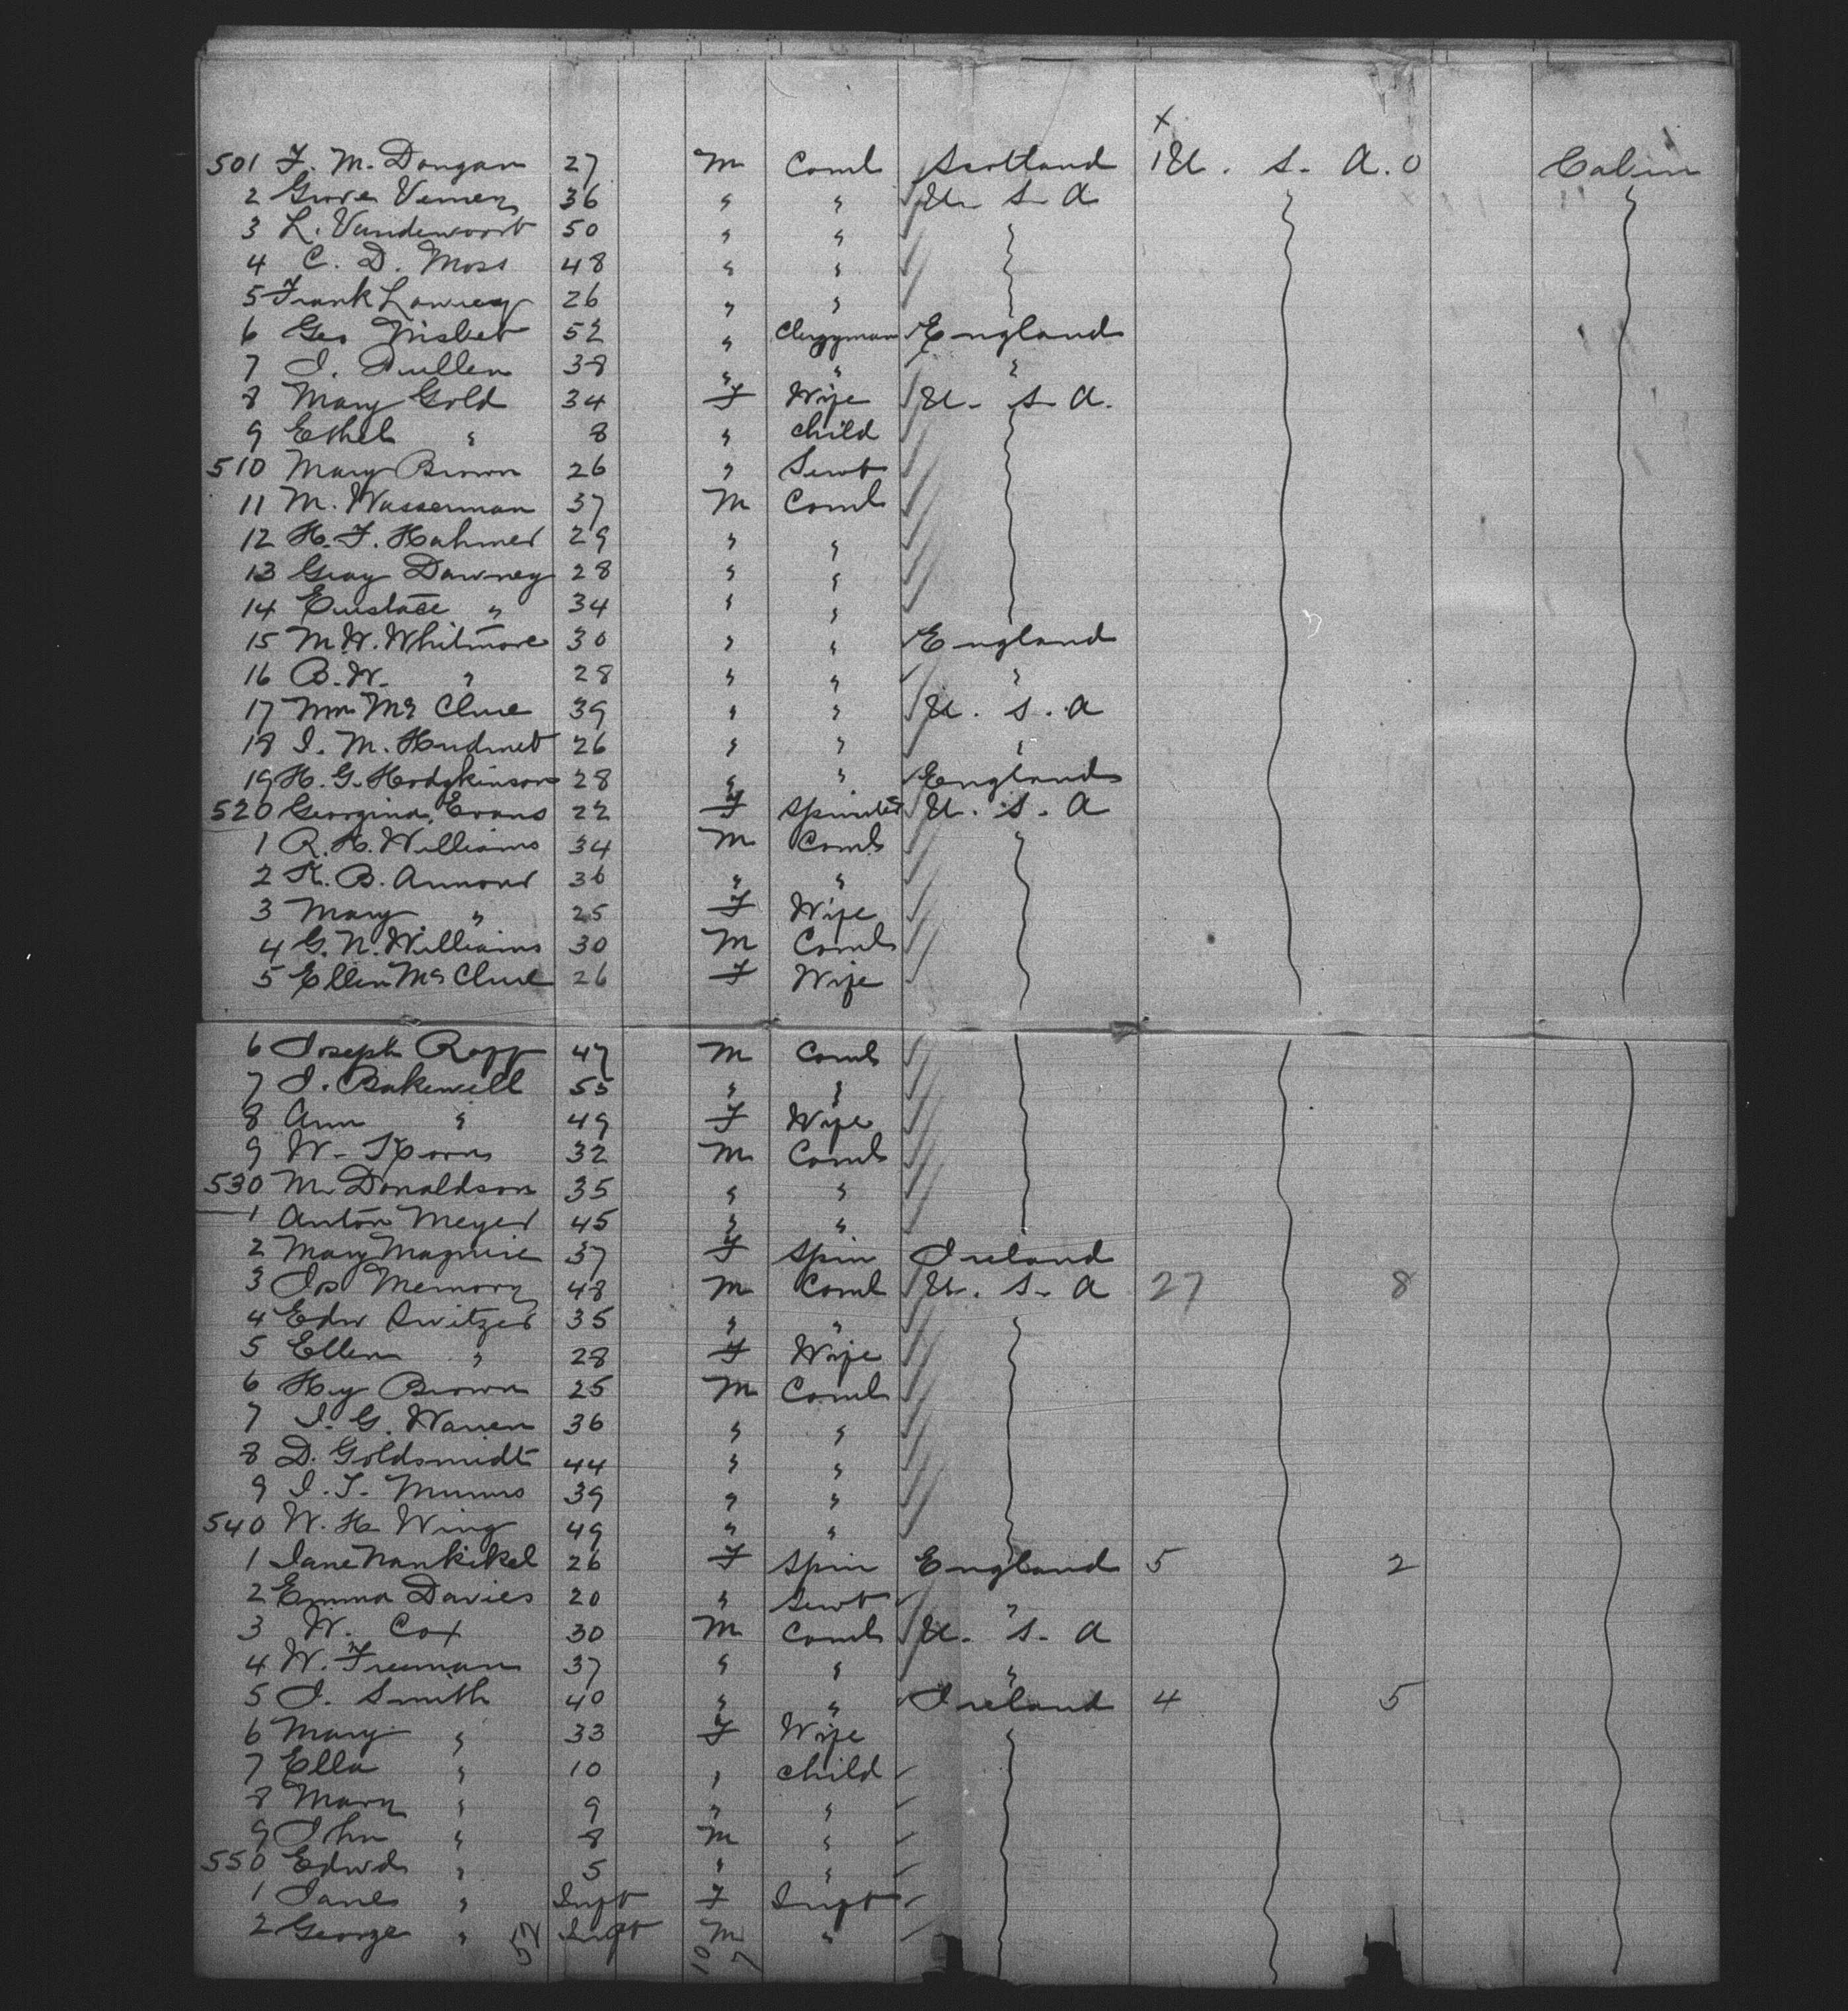 x
501 F. M. Dongan 27 M Coml Scotland 1 U. S. A. 0 Cabin
2 Grove Verner 36 " " U. S. A
3 L. Vandervoort 50 " "
4 C. D. Moss 48 " "
5 Frank Lowrey 26 " "
6 Geo Nisbet 52 " Clergyman England
7 J. Pullen 38 " " "
8 Mary Gold 34 F Wife U. S. A.
9 Ethel " 8 " child
510 Mary Brown 26 " Servt
11 M. Wasserman 37 M Coml
12 H. F. Hahmer 29 " "
13 Gray Downey 28 " "
14 Eustace " 34 " "
15 M. W. Whitmore 30 " " England
16 B. W. " 28 " " "
17 Wm Mc Clure 39 " " U. S. A
18 J. M. Hudnut 26 " " "
19 H. G. Hodgkinson 28 " " England
520 Georgina Evans 22 F Spinster U. S. A
1 R. H. Williams 34 M Coml
2 K. B. Armour 36 " "
3 Mary " 25 F Wife
4 G. N. Williams 30 M Coml
5 Ellen Mc Clure 26 F Wife
6 Joseph Rapp 47 M Coml
7 J. Bakewell 55 " "
8 Ann " 49 F Wife
9 W. Korns 32 M Coml
530 M. Donaldson 35 " "
1 Anton Meyer 45 " "
2 Mary Maguire 37 F Spin Ireland
3 Jos Memory 48 M Coml U. S. A 27 8
4 Edw Switzer 35 " "
5 Ellen " 28 F Wife
6 Hy Brown 25 M Coml
7 J. G. Warren 36 " "
8 D. Goldsmidt 44 " "
9 J. T. Munns 39 " "
540 W. H. Wing 49 " "
1 Jane Nankikel 26 F Spin England 5 2
2 Emma Davies 20 " Servt "
3 W. Cox 30 M Coml U. S. A
4 W. Freeman 37 " " "
5 J. Smith 40 " " Ireland 4 5
6 Mary " 33 F Wife "
7 Ella " 10 " child
8 Mary " 9 " "
9 Jhn " 8 M "
550 Edwd " 5 " "
1 Jane " Inft F Inft
2 George " Inft M "
52 10 7